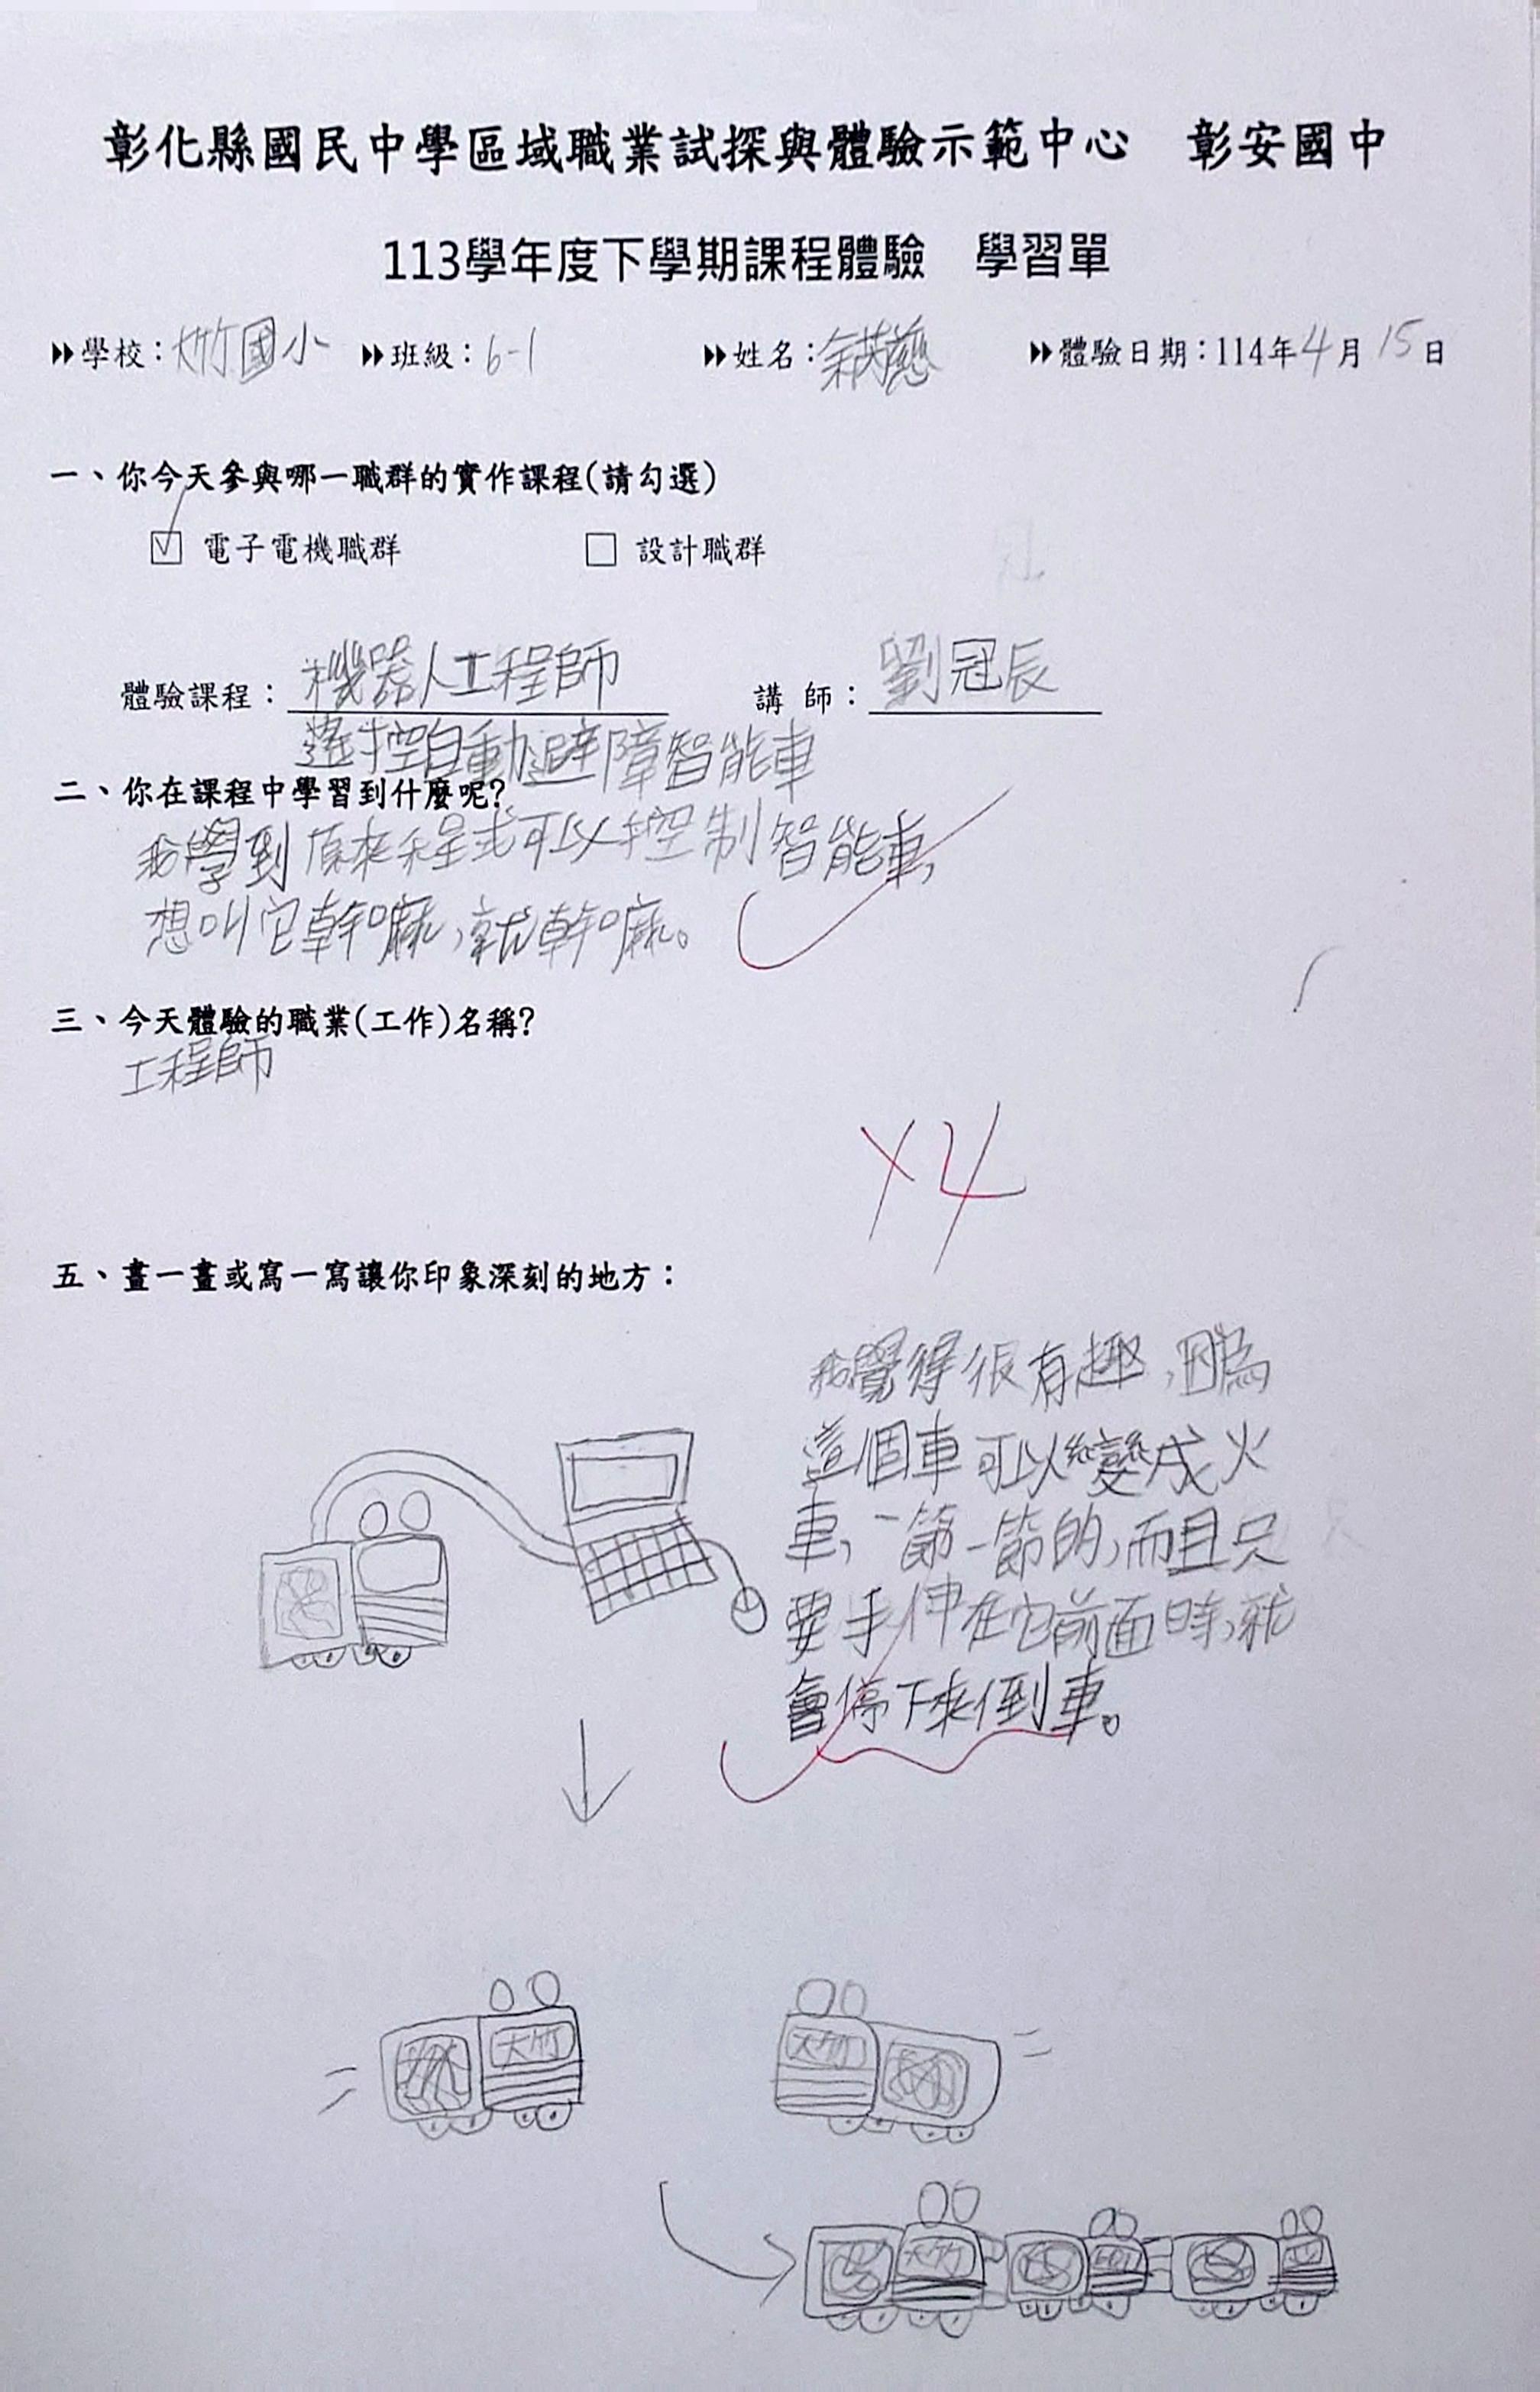 彰化縣國民中學區域職業試探與體驗示範中心　彰安國中
113學年度下學期課程體驗　學習單
學校：大竹國小　班級：6-1　姓名：余　體驗日期：114年4月15日
一、你今天參與哪一職群的實作課程(請勾選)
☑ 電子電機職群　□ 設計職群
體驗課程：機器人工程師　講 師：劉冠辰
遙控自動避障智能車
二、你在課程中學習到什麼呢?
我學到原來程式可以控制智能車,
想叫它幹嘛,就幹嘛。
三、今天體驗的職業(工作)名稱?
工程師
×4
五、畫一畫或寫一寫讓你印象深刻的地方：
我覺得很有趣,因為
這個車可以變成火
車,一節一節的,而且只
要手伸在它前面時,就
會停下來倒車。
大竹
大竹
大竹